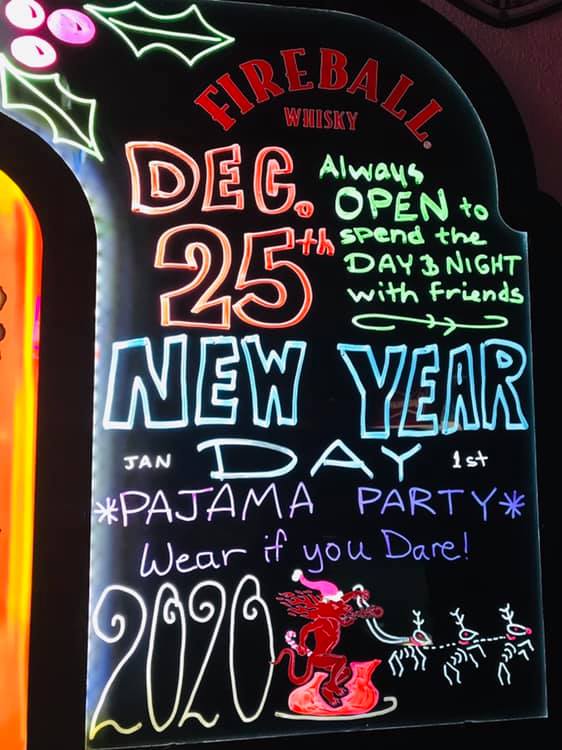 FIREBALL
WHISKY
DEC.
25th
Always
OPEN to
spend the
DAY & NIGHT
with Friends
NEW YEAR
JAN DAY 1st
*PAJAMA PARTY*
Wear if you Dare!
2020